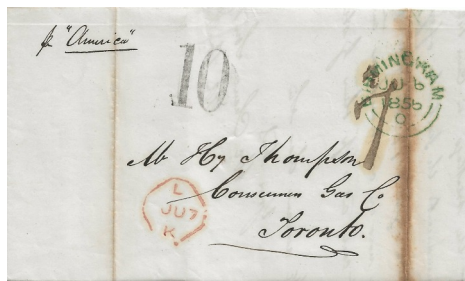 p "America"
10
BIRMINGHAM
JU 6
1856
O
7
Mr Hy Thompson
Consumers Gas Co
Toronto.
L
JU 7
K